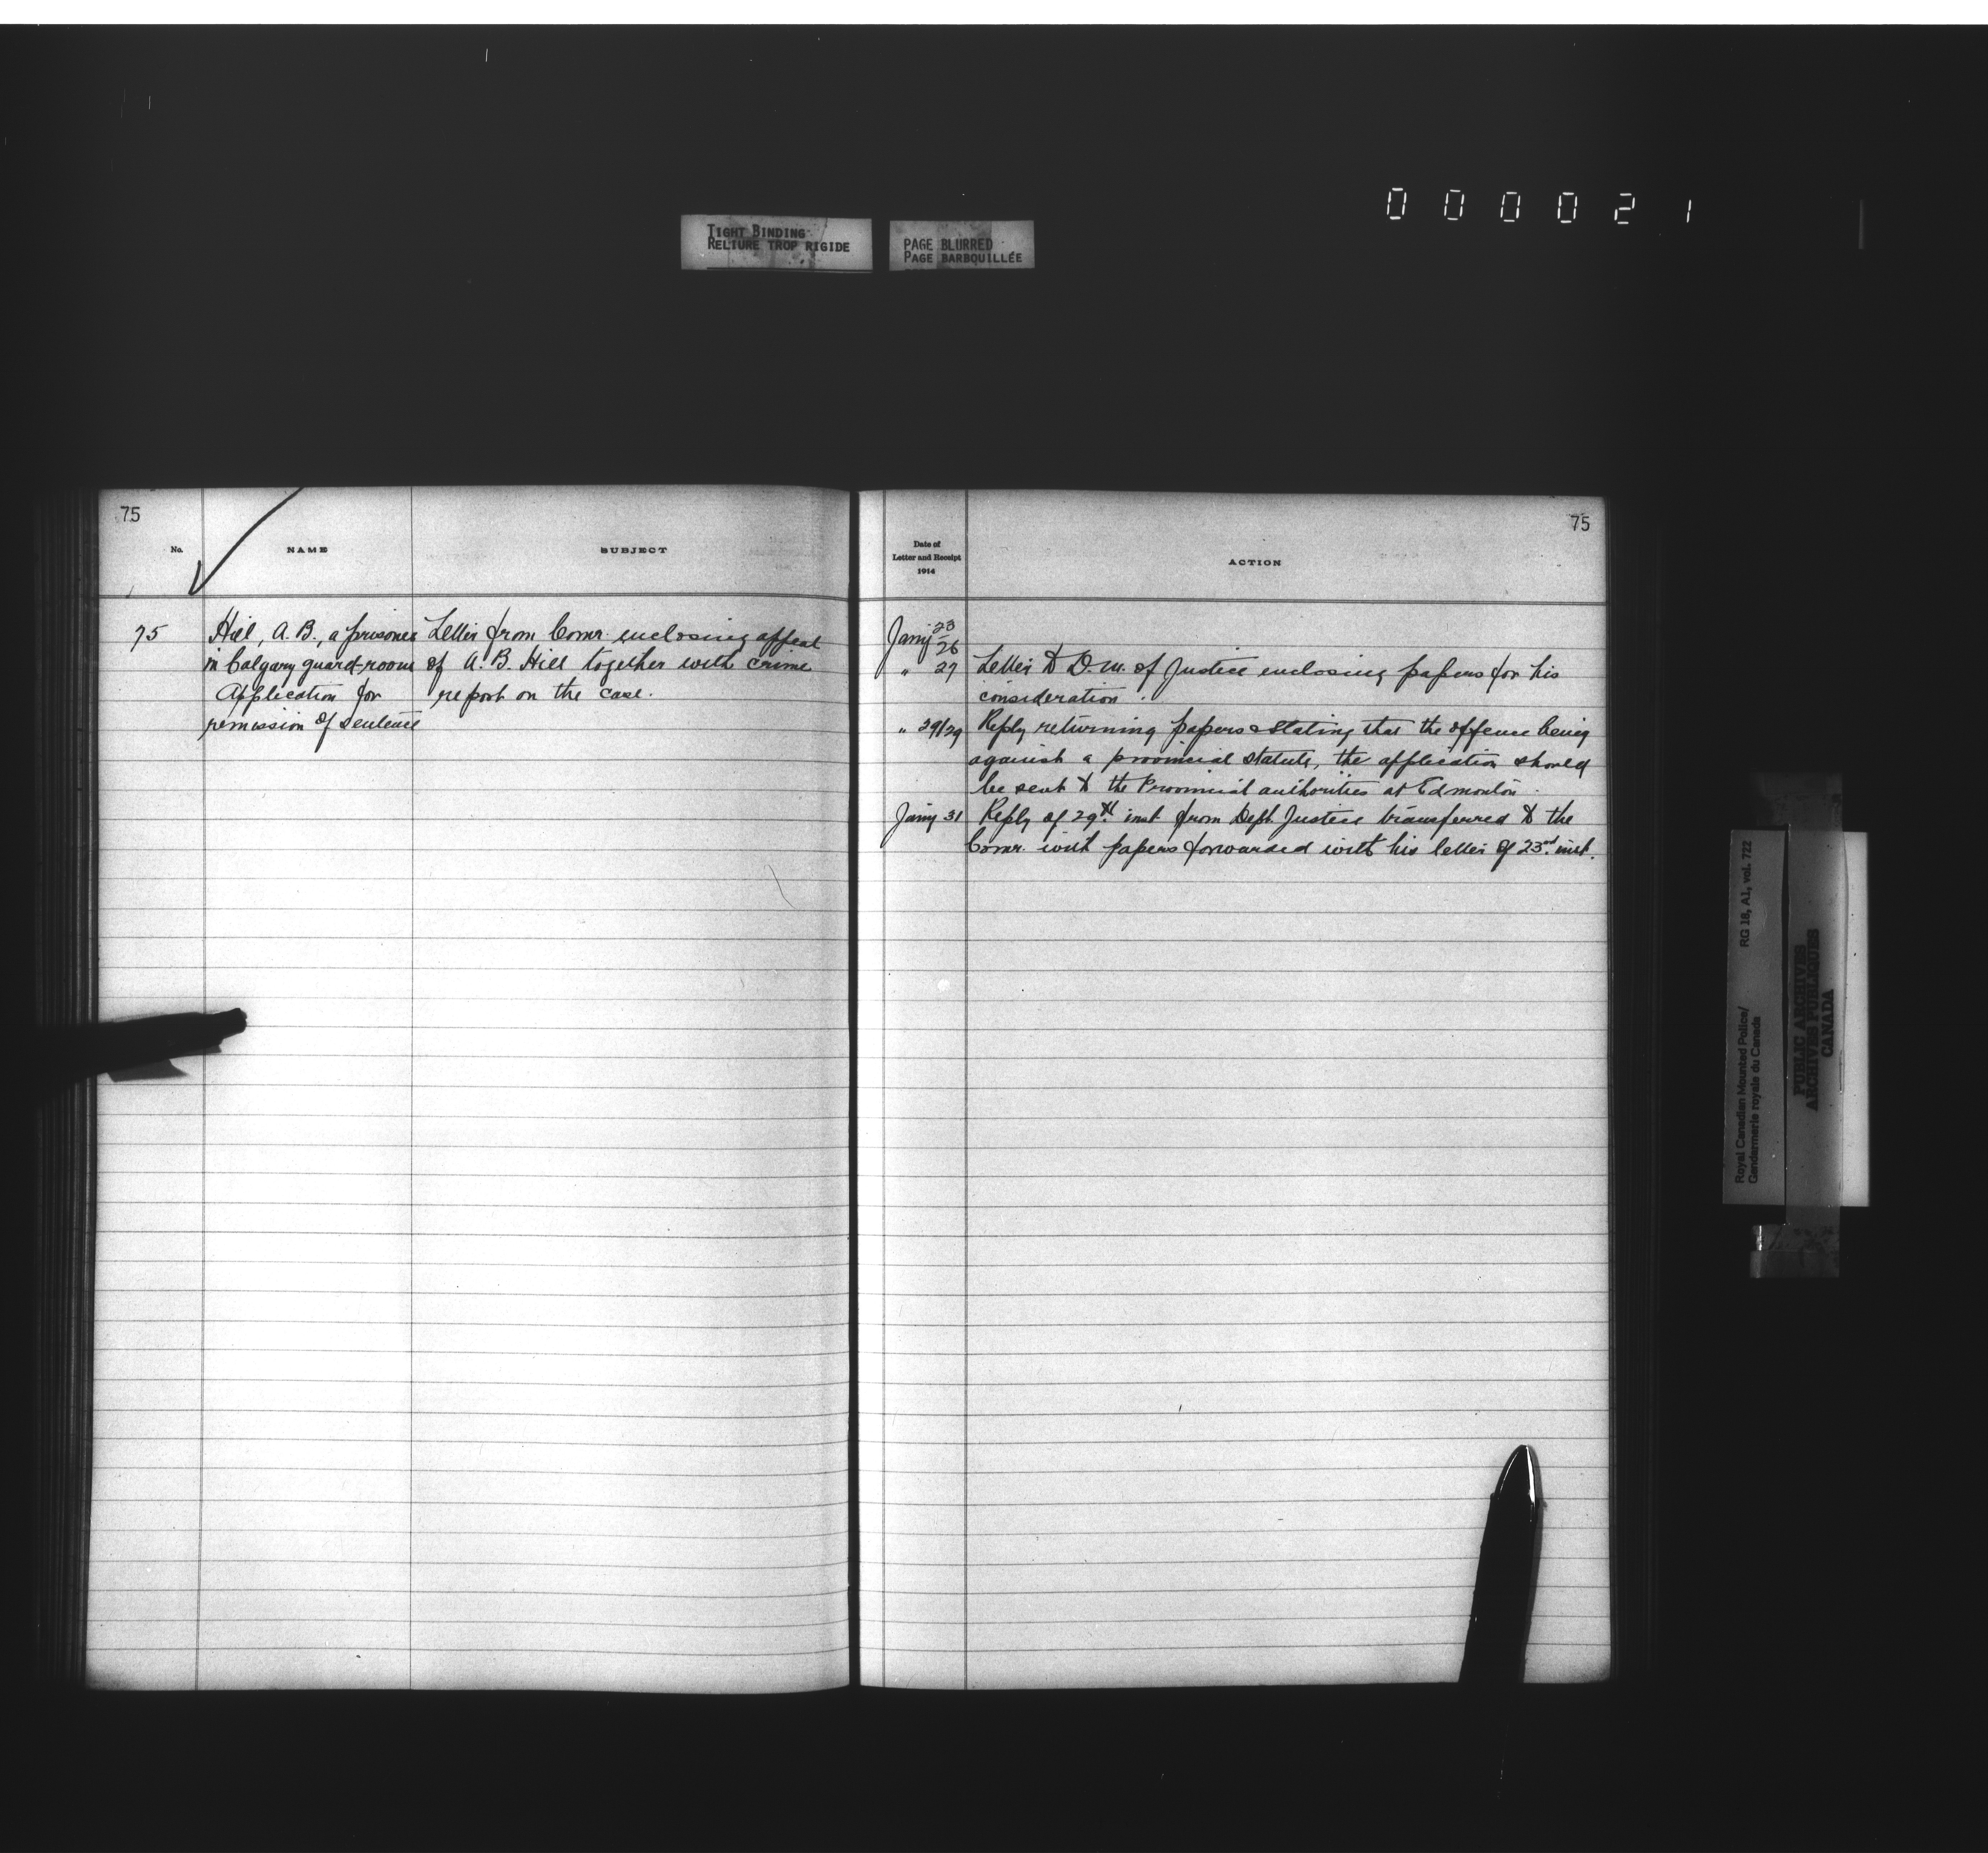 0 0 0 0 2 1
TIGHT BINDING
RELIURE TROP RIGIDE
PAGE BLURRED
PAGE BARBOUILLÉE
75
No.
NAME
SUBJECT
75
Hill, A. B., a prisoner
in Calgary guard-room
Application for
remission of sentence
Letter from Comr. enclosing appeal
of A. B. Hill together with crime
report on the case.
75
Date of
Letter and Receipt
1914
ACTION
Jany 23/26
" 27 Letter to D. M. of Justice enclosing papers for his
consideration.
" 29/29 Reply returning papers & stating that the offence being
against a provincial statute, the application should
be sent to the Provincial authorities at Edmonton.
Jany 31 Reply of 29th inst from Dept. Justice transferred to the
Comr. with papers forwarded with his letter of 23rd inst.
RG 18, A1, vol. 722
Royal Canadian Mounted Police/
Gendarmerie royale du Canada
PUBLIC ARCHIVES
ARCHIVES PUBLIQUES
CANADA